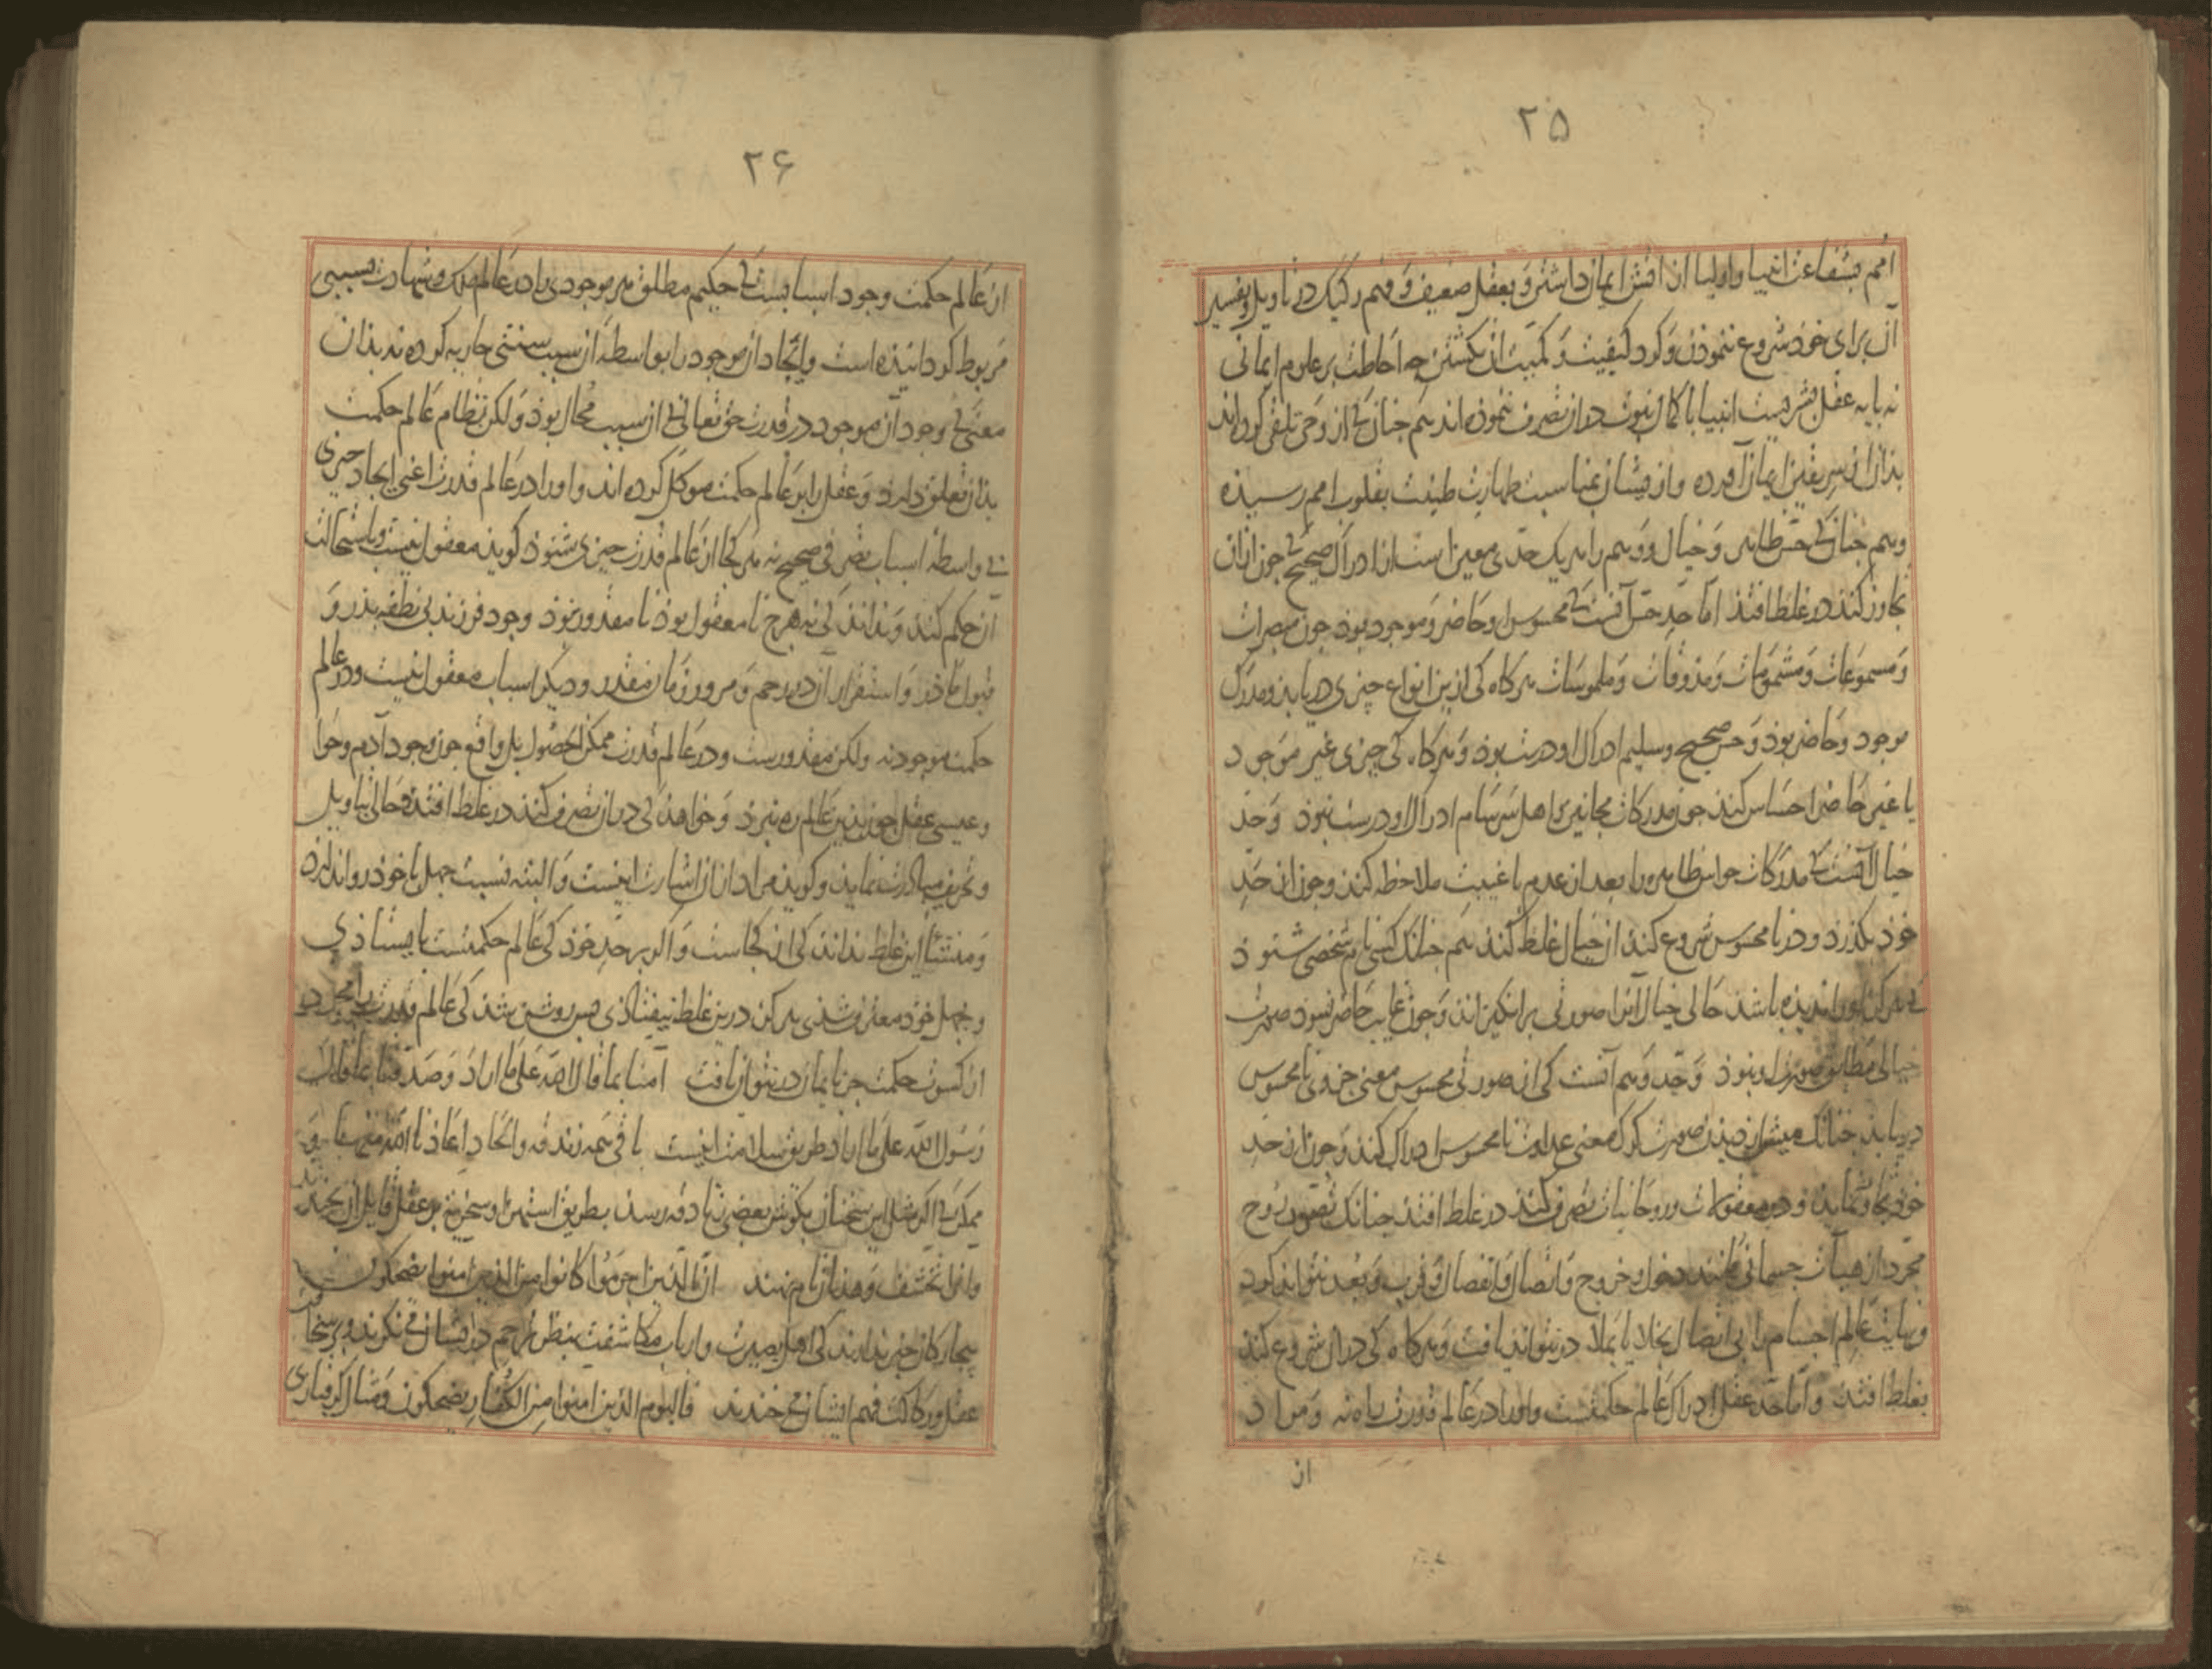 ۲۵
امم بشفاعت انبیا و اولیا از افق ایمان داشتن و بعقل ضعیف و فهم رکیک در تاویل و تفسیر
آن برای خود شروع ننموذن و کرد کیفیت و کمیت آن نکشتن چه احاطت بر علوم ایمانی
نه پایه عقل بشریست انبیا با کمال نبوت در آن تصرف ننموذه اند هم جنانک از وحی تلقی کرده اند
بذان از سر یقین ایمان آورده و از یشان بمناسبت طهارت طینت بقلوب امم رسیذه
و هم جنانک حس ظاهر و خیال و وهم را هر یک حدی معین است از ادراک صحیح که جون از ان
تجاوز کنند در غلط افتند اما حد حس آنست که محسوس او حاضر و موجود بوذ جون مبصرات
و مسموعات و مشمومات و مذوقات و ملموسات هرکاه کی ازین انواع چیزی دریابذ و مدرک
موجود و حاضر بوذ و حس صحیح و سلیم ادراک او درست بوذ و هرکاه کی چیزی غیر موجود
یا غیر حاضر احساس کند جون مدرکات مجانین و اهل سرسام ادراک او درست نبوذ و حد
خیال آنست که مدرکات حواس ظاهر را بعد از عدم یا غیبت ملاحظه کند و جون از حد
خوذ بکذرد و در نامحسوس شروع کند از خیال غلط کند هم جنانک کسی نام شخصی شنوذ
که هرکز او را ندیذه باشد حالی خیال آنرا صورتی برانکیزاند و جون غایب حاضر شود صورت
خیالی مطابق صورت او نبوذ و حد وهم آنست کی از صورتی محسوس معنی جزوی نامحسوس
دریابد جنانک میش از دیذن صورت کرک معنی عداوت نامحسوس ادراک کند و جون از حد
خوذ تجاوز نماید و در معقولات و روحانیات تصرف کند در غلط افتد جنانک تصور روح
مجرد از هیآت جسمانی مانند دخول و خروج و اتصال و انفصال و قرب و بعد نتواند کرد
و نهایت عالم اجسام را بی اتصال بخلا یا بملا در نتواند یافت و هرکاه کی در آن شروع کند
بغلط افتد و اما حد عقل ادراک عالم حکمتست و او را در عالم قدرت راه نه و مراد
از
۲۶
از عالم حکمت وجود اسبابست که حکیم مطلق هر موجودی را در عالم ملک و شهادت بسببی
مربوط کردانیذه است و ایجاد آن موجود را بواسطه آن سبب سنتی جاریه کرده نه بذان
معنی که وجود آن موجود در قدرت حق تعالی بی آن سبب محال بوذ و لکن نظام عالم حکمت
بذان تعلق دارد و عقل را بر عالم حکمت موکل کرده اند و او را در عالم قدرت اعنی ایجاد چیزی
بی واسطه اسباب تصرفی صحیح نه هر کجا از عالم قدرت چیزی شنوذ کوید معقول نیست و باستحالت
آن حکم کند و نداند کی نه هرچ نا معقول بوذ نا مقدور بوذ وجود فرزند بی نطفه پذر و
قبول ماذر و استقرار آن در رحم و مرور زمان مقدر و دیکر اسباب معقول نیست و در عالم
حکمت موجود نه و لکن مقدورست و در عالم قدرت ممکن الحصول بل واقع جون وجود آدم و حوا
و عیسی عقل جون بدین عالم ره نبرذ و خواهد کی در آن تصرف کند در غلط افتد و حالی بتاویل
و تحریف مبادرت نماید و کوید مراد از ان اشارت اینست و البته نسبت جهل با خوذ روا ندارد
و منشأ این غلط نداند کی از کجاست و اکر بر حد خوذ کی عالم حکمتست بایستاذی
و بجهل خوذ معترف شذی هرکز درین غلط نیفتاذی پس روشن شد کی عالم قدرت را مجرد
از کسوت حکمت جز بایمان در نتوان یافت آمنا بما قال الله علی ما اراد و صدقنا بما قال
رسول الله علی ما اراد طریق سلامت اینست باقی همه زندقه و الحاد اعاذنا الله منهما و
ممکن که اکر مثل این سخنان بکوش بعضی زنادقه رسد بطریق استهزا و سخریت بر عقل قایل آن بخندند
و آنرا تخشف و هذیان نام نهند ان الذین اجرموا کانوا من الذین امنوا یضحکون
بیجارکان خبر ندارند کی اهل بصیرت و ارباب مکاشفت بنظر ترحم در ایشان می نکرند و بر سخافت
عقل و رکاکت فهم ایشان می خندند فالیوم الذین امنوا من الکفار یضحکون و مثال کرفتاری